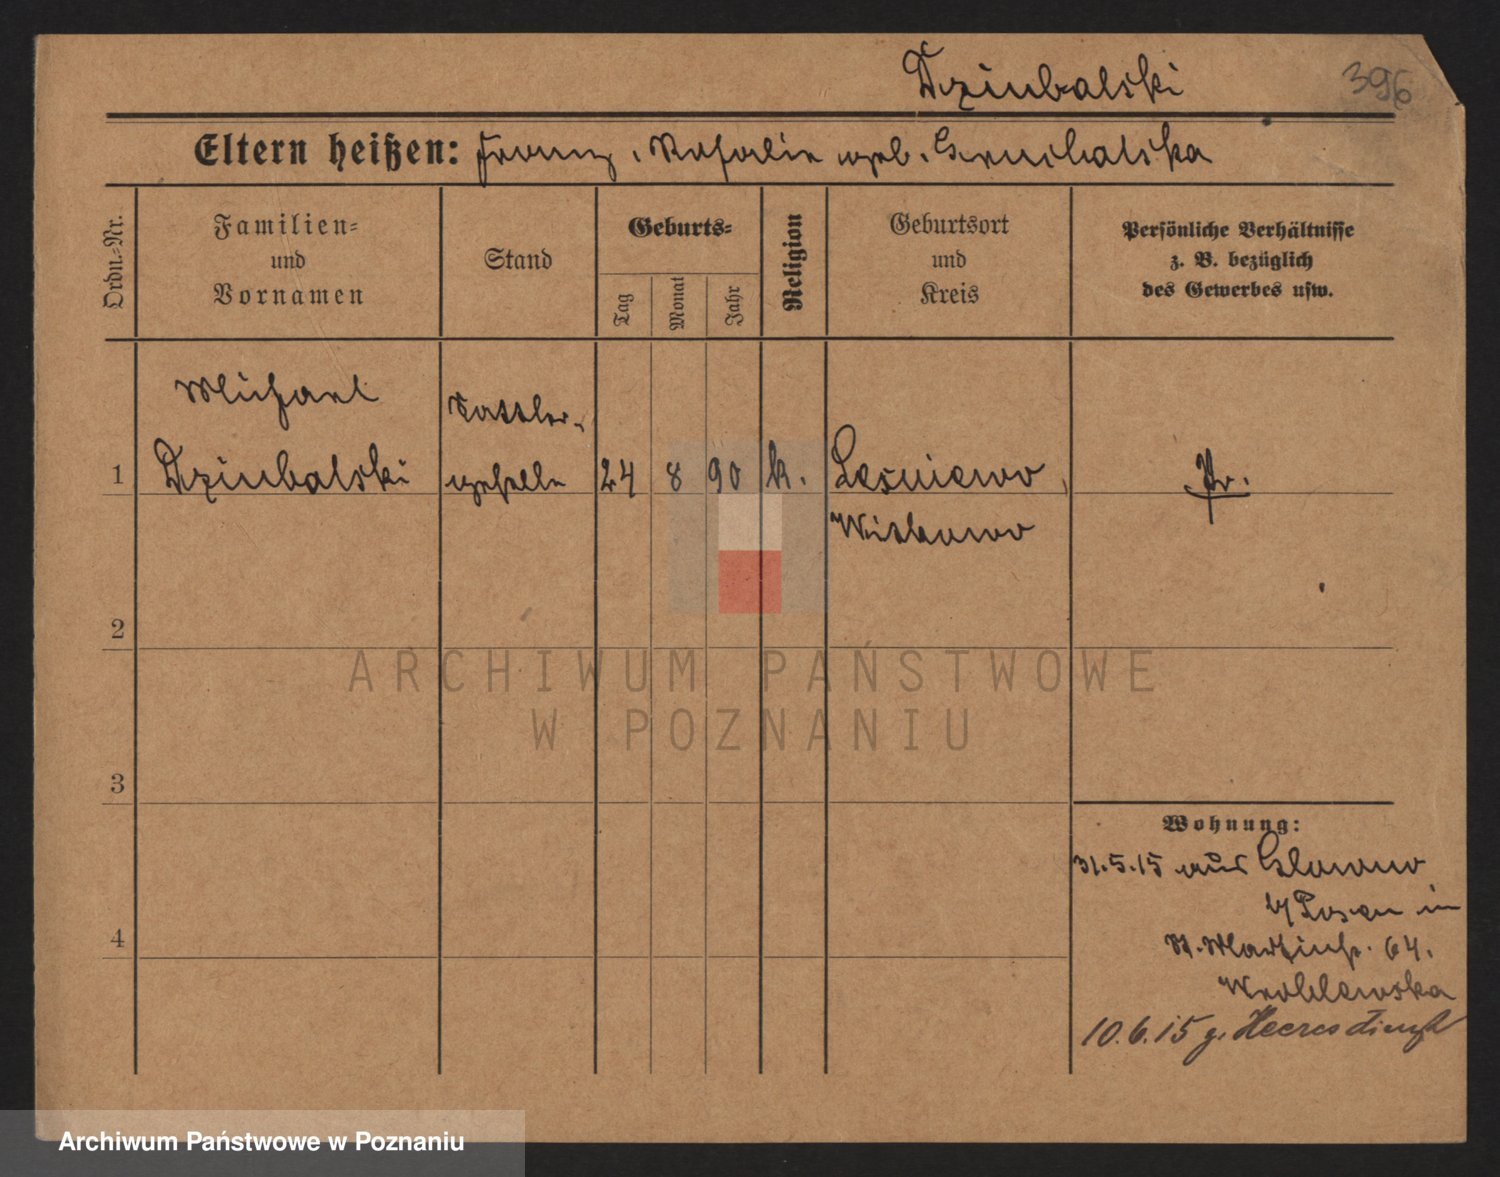 Dziubalski
396
Eltern heißen: Franz, Rosalie geb.
Ordn.-Nr.
Familien-
und
Vornamen
Stand
Geburts-
Tag
Monat
Jahr
Religion
Geburtsort
und
Kreis
Persönliche Verhältnisse
z. B. bezüglich
des Gewerbes usw.
Michael
Dziubalski
Sattler-
geselle
1
24 8 90 k.
Leśniewo
Witkowo
Pr.
2
3
4
Wohnung:
31.5.15 aus Glowno
b/ Posen in
St. Martinstr. 64.
Wroblewska
10.6.15 z. Heeresdienst
ARCHIWUM PAŃSTWOWE
W POZNANIU
Archiwum Państwowe w Poznaniu